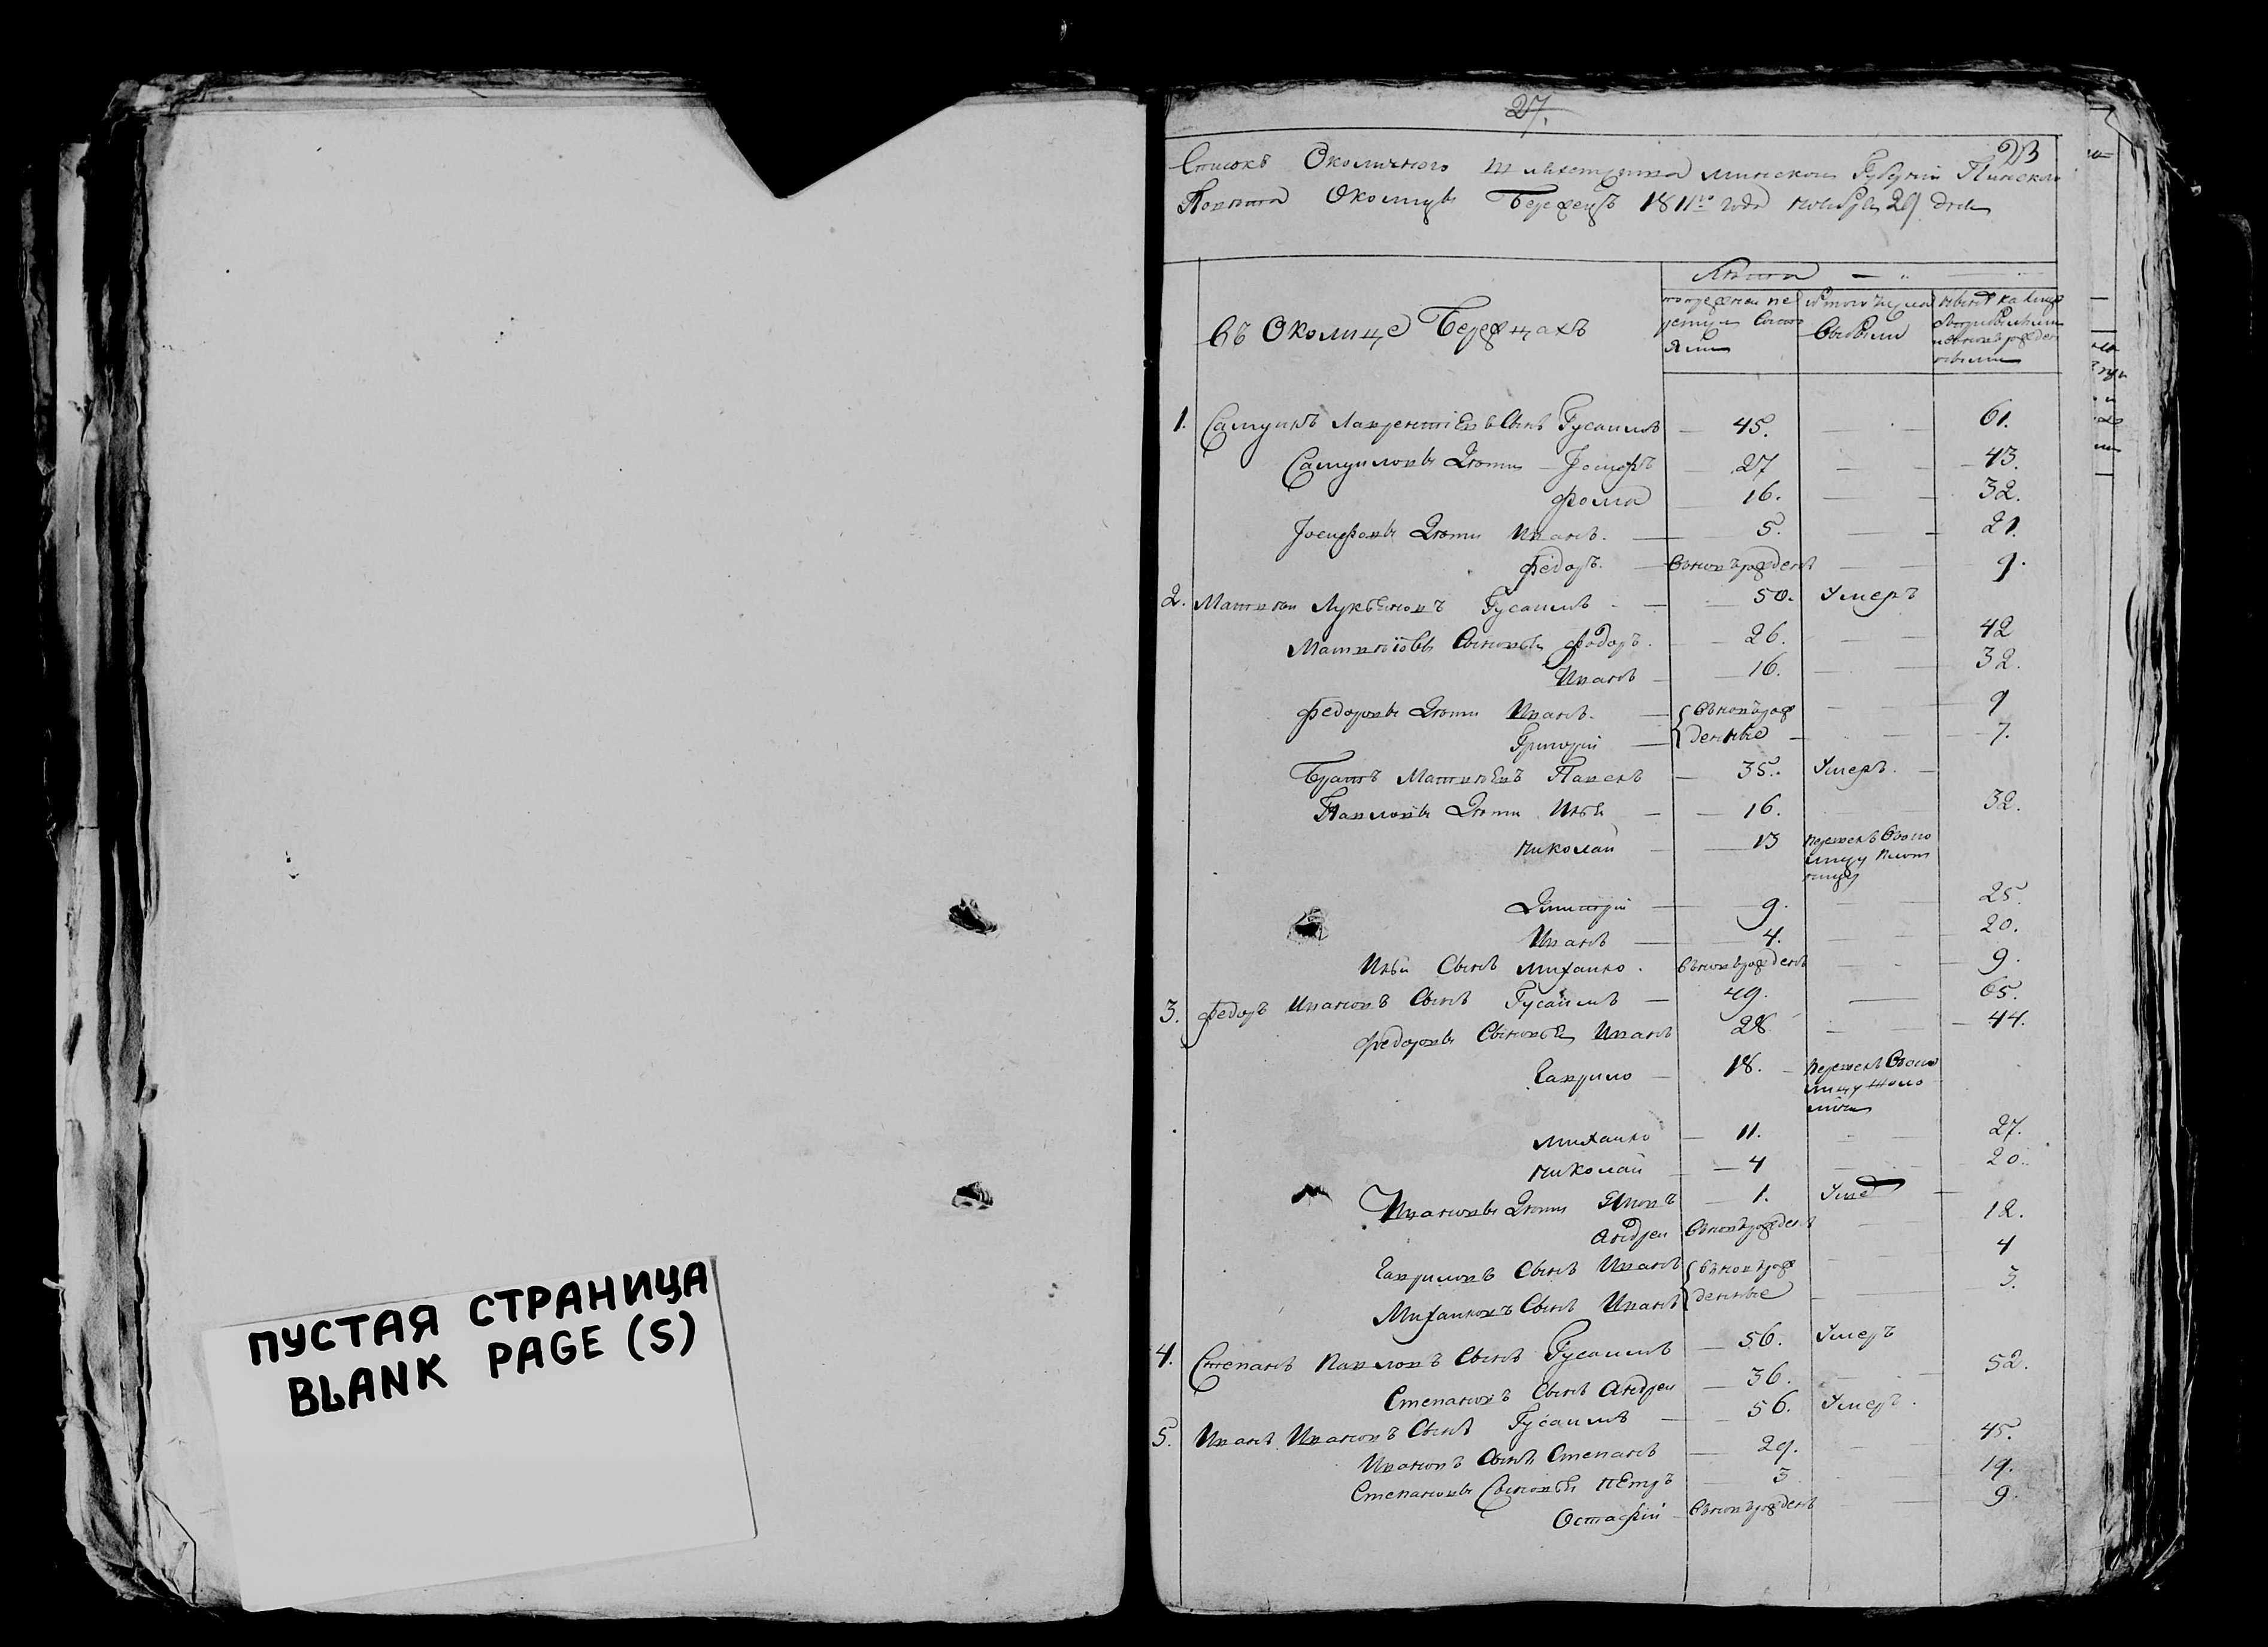 ПУСТАЯ СТРАНИЦА
BLANK PAGE (S)
27.
23
Списокъ Околичного Шляхетства Минской Губерніи Пинского
Повѣта Околицы Бережецъ 1811го года ноября 29 дня
Въ Околице Бережцахъ
Лѣта
по прежней ре
визіи Состо
яли
изтого числа
Выбыли
1. Самуилъ Лаврентіевъ Сынъ Гусаимъ — 45. — 61.
Самуиловы Дѣти — Іосифъ — 27 — 43.
Фома — 16. — 32.
Іосифовы Дѣти Иванъ. — 5. — 21.
Федоръ. — Вновь рожденъ — 9.
2. Матвѣй Лукьяновъ Гусаимъ — 50. Умеръ
Матвѣіовы Сыновья Федоръ. — 26. — 42
Иванъ — 16. — 32.
Федоровы Дѣти Иванъ. — Вновь рож — 9
Григорій — денные — 7.
Братъ Матвѣевъ Павелъ — 35. Умеръ. —
Павловы Дѣти Илья — 16. 32.
Николай — 13 перешелъ Воко
лицу Плот
ницу
Дмитрій — 9. — 25.
Иванъ — 4. — 20.
Ильи Сынъ Михайло. Вновь рожденъ — 9.
3. Федоръ Ивановъ Сынъ Гусаимъ — 49. — 65.
Федоровы Сыновья Иванъ 28 — 44.
Гаврило — 18. — Перешелъ Воко
лицу
Михайло — 11. — 27.
Николай — 4 — 20.
Ивановы Дѣти — 1. Умеръ —
Андрей Вновь рожденъ — 12.
Гавриловъ Сынъ Иванъ Вновь рож — 4
Михайловъ Сынъ Иванъ денные — 3.
4. Степанъ Павловъ Сынъ Гусаимъ — 56. Умеръ
Степановъ Сынъ Андрей — 36. — 52.
5. Иванъ Ивановъ Сынъ Гусаимъ — 56. Умеръ.
Ивановъ Сынъ Степанъ — 29. — 45.
Степановы Сыновья Петръ — 3 19.
Остафій — Вновь рожденъ — 9.